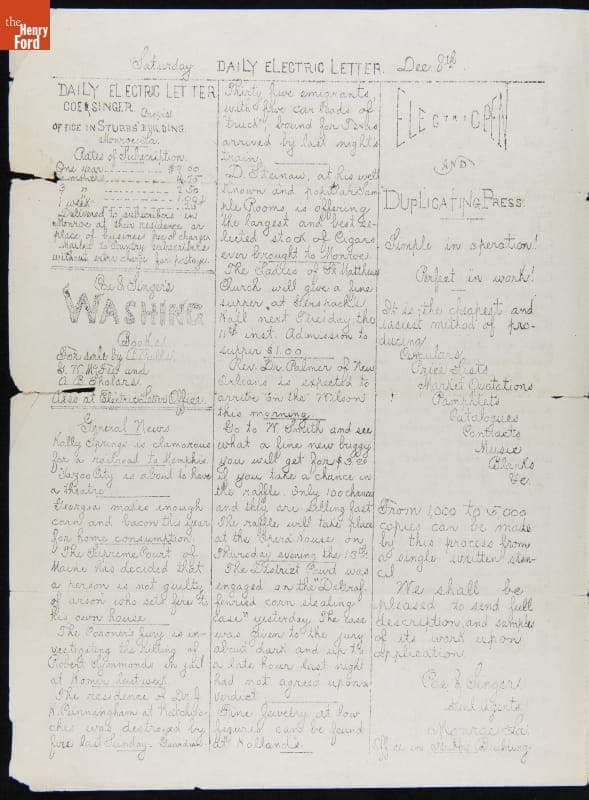 the
Henry
Ford
Saturday DAILY ELECTRIC LETTER. Dec. 8th
DAILY ELECTRIC LETTER
COE & SINGER.
Props.
OFFICE IN STUBBS' BUILDING.
Monroe, La.
Rates of Subscription.
One year $9.00
6 months 4.75
3 " 2.50
1 " 1.00
1 week .25
Delivered to subscribers in
Monroe at their residence or
place of business free of charge
Mailed to Country subscribers
without extra charge for postage.
Coe & Singer's
WASHING
Books!
For sale by
G. W. McFee and
A. B. Sholars.
Also at Electric Letter Office.
General News
Holly Springs is clamorous
for a railroad to Memphis.
Yazoo City is about to have
a theatre.
Georgia makes enough
corn and bacon this year
for home consumption.
The Supreme Court of
Maine has decided that
a person is not guilty
of arson who sets fire to
his own house.
The Coroner's jury is in-
vestigating the killing of
Robert Simmonds in jail
at Homer last week.
The residence of Dr. J.
H. Cunningham at Natchito-
ches was destroyed by
fire last Sunday. Guardian
Thirty five emigrants
with five car loads of
"truck" bound for Texas
arrived by last night's
train.
D. Steinau, at his well
known and popular Sam-
ple Rooms, is offering
the largest and best se-
lected stock of Cigars
ever brought to Monroe.
The Ladies of St. Matthews
Church will give a fine
supper at
Hall next Tuesday, the
11th inst. Admission to
supper $1.00
Rev. Dr. Palmer of New
Orleans is expected to
arrive on the Wilson
this morning.
Go to W. Smith and see
what a fine new buggy
you will get for $3.50
if you take a chance in
the raffle. Only 100 chances
and they are selling fast.
The raffle will take place
at the Opera House on
Thursday evening the 13th.
The District Court was
engaged on the "Delgraf-
fenried corn stealing
case" yesterday. The case
was given to the jury
about dark and up to
a late hour last night
had not agreed upon a
verdict.
Fine Jewelry at low
figures can be found
at Holland's.
ELECTRIC PEN
AND
DUPLICATING PRESS
Simple in operation!
Perfect in work!
It is the cheapest and
easiest method of pro-
ducing
Circulars
Price Lists
Market Quotations
Pamphlets
Catalogues
Contracts
Music
Blanks
&c.
From 1,000 to 5,000
copies can be made
by this process from
a single written sten-
cil
We shall be
pleased to send full
description and samples
of its work upon
application.
Coe & Singer
Agents
Monroe La
Office in Stubbs' Building